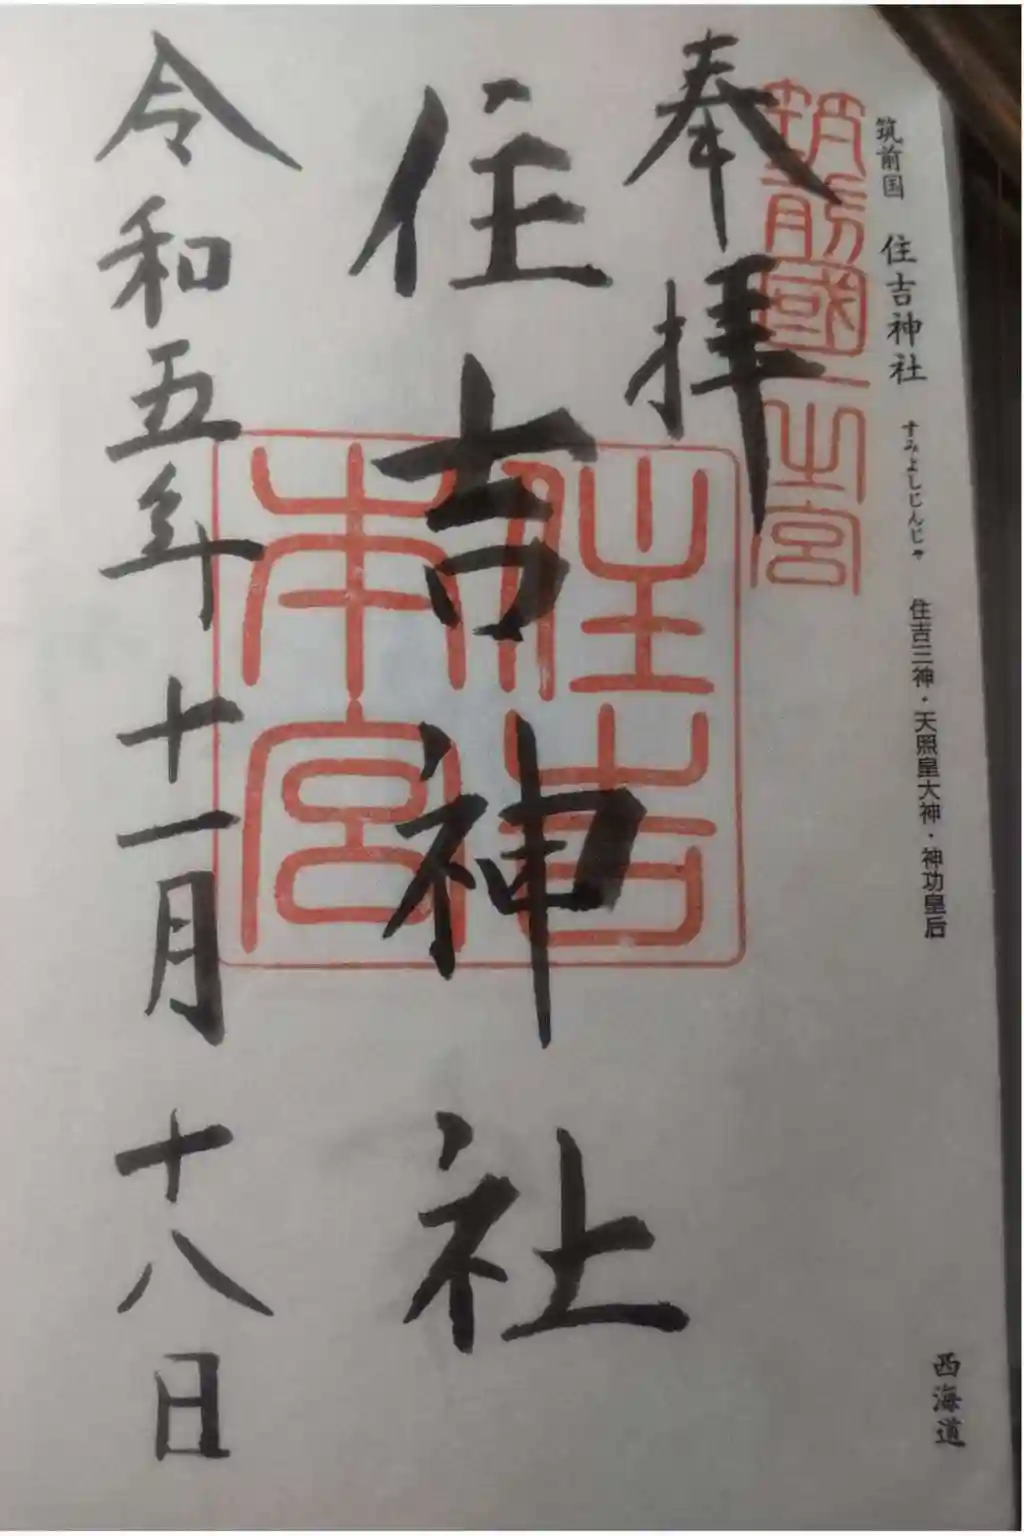 筑前国 住吉神社 すみよしじんじゃ 住吉三神・天照皇大神・神功皇后
西海道
筑前國一之宮
奉拝
住吉神社
住吉
本宮
令和五年 十一月 十八日